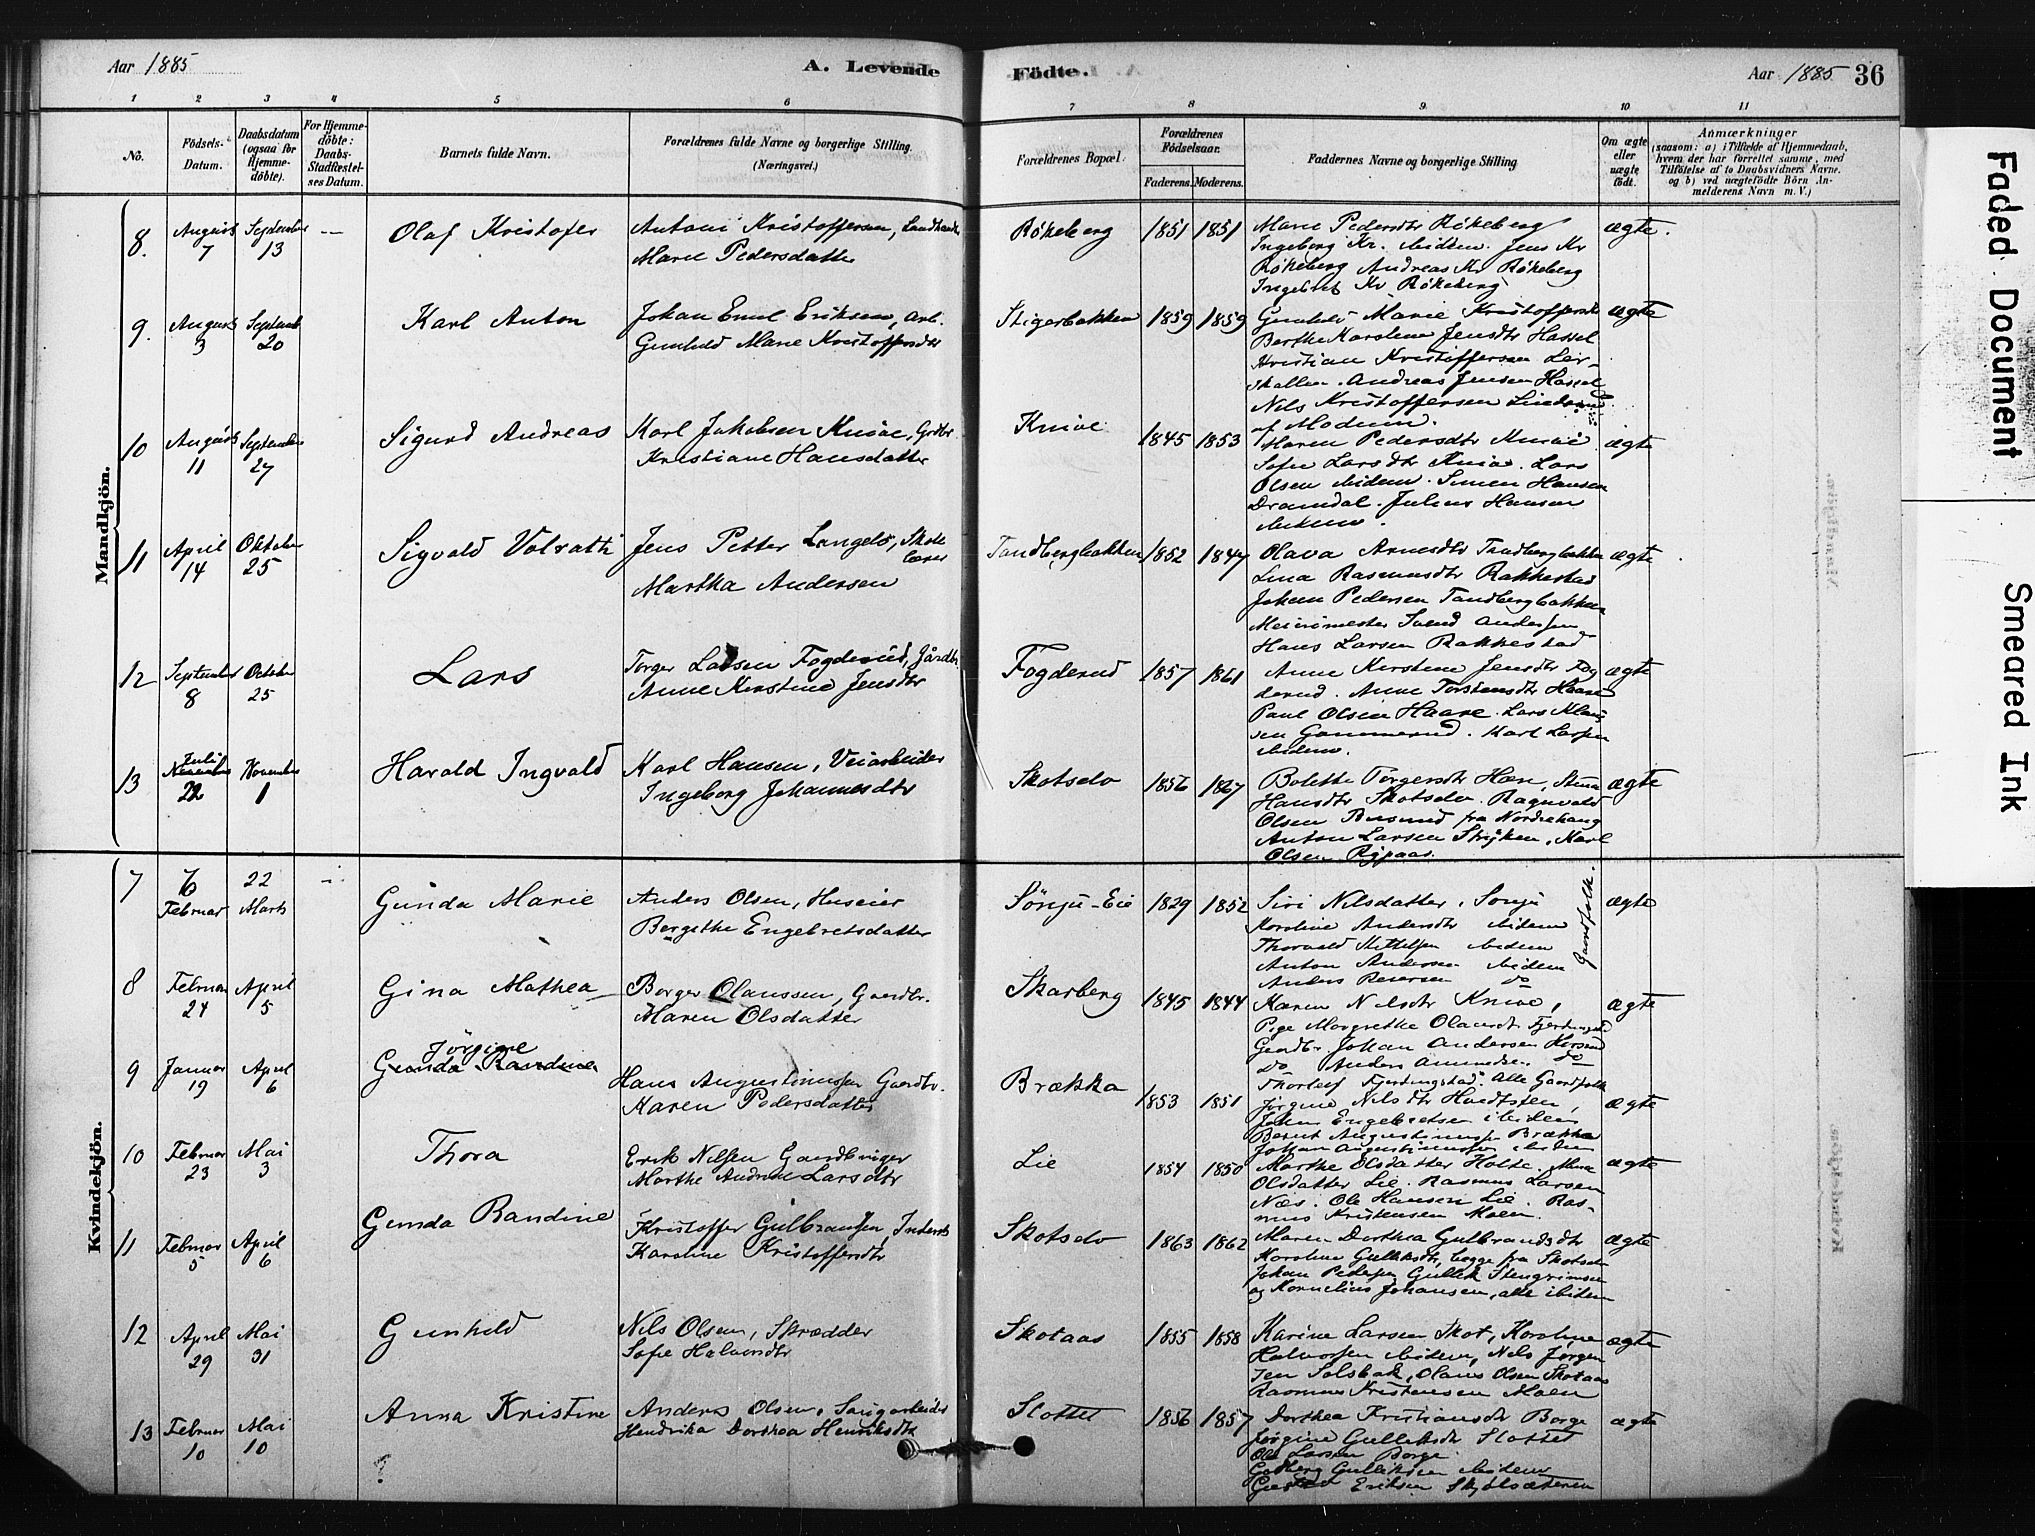 Aar 1885
A. Levende
Födte.
Aar 1885
36
1 2 3 4 5 6 7 8 9 10 11
No.
Födsels-
Datum.
Daabsdatum
(ogsaa for
Hjemme-
döbte).
For Hjemme-
döbte:
Daabs-
Stadfæstel-
ses Datum.
Barnets fulde Navn.
Forældrenes fulde Navne og borgerlige Stilling.
(Næringsvei.)
Forældrenes Bopæl.
Forældrenes
Födselsaar.
Faderens.
Moderens.
Faddernes Navne og borgerlige Stilling.
Om ægte
eller
uægte
födt.
Anmærkninger
(saasom: a) i Tilfælde af Hjemmedaab,
hvem der har forrettet samme, med
Tilföielse af to Daabsvidners Navne.
og b) ved uægtefödte Börn An-
melderens Navn m. V.)
Mandkjön.
8. August 7 September 13 — Olaf Kristofer
Antoni Kristoffersen, Landhandler
Maren Pedersdatter
Rökeberg 1851 1851
Marie Pedersdtr Rökeberg
Ingeborg Kr. ibidem. Jens Kr
Rökeberg Andreas Kr Rökeberg
Ingebret Kr Rökeberg
ægte.
9. August 3 Septemb 20 Karl Anton
Johan Emil Eriksen, Arb.
Gunhild Marie Kristoffersdtr
Stigerbakken 1859 1859
Gunhild Marie Kristoffersdtr
Berthe Karoline Jensdtr Hassel
Kristian Kristoffersen Ler-
skallen. Andreas Jensen Hassel
Nils Kristoffersen
af Modum.
ægte
10 August 11 September 27 Sigurd Andreas
Karl Jakobsen Knive, Grdbr.
Kristiane Hansdatter
Knive 1845 1853
Maren Pedersdtr Knive
Sofie Larsdtr Knive. Lars
Olsen ibidem. Simen Hansen
Dramdal. Julius Hansen
ibidem.
ægte
11 April 14 Oktober 25 Sigvald Volrath
Jens Petter Langelö, Skole
lærer
Martha Andersen
Tandbergbakken 1852 1847
Olava Arnesdtr Tandbergbakken
Lina Rasmusdtr Rakkestad
Johan Pedersen Tandbergbakken
Meierimester Svend Andersen
Hans Larsen Rakkestad
ægte
12 September 8 October 25 Lars
Torger Larsen Fogderud, Gårdbr.
Anne Kerstine Jensdtr
Fogderud 1857 1861
Anne Kerstine Jensdtr Fog
derud. Anne Torstensdtr Haare
Paul Olsen Haare. Lars Klau
sen Gammerud. Karl Larsen
ibidem.
ægte
13 Juli 22 November 1 Harald Ingvald
Karl Hansen, Veiarbeider
Ingeborg Johannesdtr
Skotselv 1856 1867
Bolette Torgersdtr Horn, Anna
Hansdtr Skotselv. Ragnvald
Olsen Busund fra Norderhaug
Anton Larsen Stryken, Karl
Olsen Rypaas.
ægte
Kvindekjön.
7 16 Februar 22 Marts — Gunda Marie
Anders Olsen, Huseier
Bergithe Engebretsdatter
Sönju-Eie 1829 1852
Siri Nilsdatter, Sonju
Karoline Andersdtr ibidem
Thorvald Kittelsen ibidem
Anton Andersen ibidem
Anders Reiersen do
Gaardfolk.
ægte
8 Februar 24 April 5 Gina Mathea
Borger Olaussen, Gaardbr.
Maren Olsdatter
Skarberg 1845 1844
Karen Nilsdtr Knive,
Pige Margrethe Olausdtr Fjerdingstad
Gaardbr Johan Andersen Horsrud
Do Anders Amundsen do
Thorleif Fjerdingstad. Alle Gaardfolk
ægte
9 Januar 19 April 6 Jörgine
Gunda Randine
Hans Augustinussen Gaardbr.
Karen Pedersdatter
Brækka 1853 1851
Jörgine Nilsdtr Hvedtsten,
Johan Engebretsen ibidem
Bernt Augustinussen Brækka
Johan Augustinussen ibidem
ægte
10 Februar 23 Mai 3 Thora
Erik Nilsen Gaardbruger
Marthe Andrine Larsdtr
Lie 1854 1850
Marthe Olsdatter Holte. Anne
Olsdatter Lie. Rasmus Larsen
Næs. Ole Hansen Lie. Ras-
mus Kristensen Moen.
ægte
11 Februar 5 April 6 Gunda Randine
Kristoffer Gulbransen, Inderst
Karoline Kristoffersdtr
Skotselv 1863 1862
Maren Dorthea Gulbrandsdtr
Karoline Gulliksdtr, begge fra Skotselv
Johan Pedersen Gullik Stengrimsen
og Kornelius Johansen, alle ibidem
ægte
12 April 29 Mai 31 Gunhild
Nils Olsen, Skrædder
Sofie Halvorsdtr
Skotaas 1855 1858
Karine Larsen Skot, Karoline
Halvorsen ibidem, Nils Jörgen
sen Solsbak, Olaus Olsen Skotaas
Rasmus Kristensen Moen
ægte
13 Februar 10 Mai 10 Anna Kristine
?
Anders Olsen, Saugarbeider
Hendrika Dorthea Henriksdtr
Slottet 1856 1857
Dorthea Kristiansdtr Borge
Jörgine Gulliksdtr Slottet
Ole Larsen Borge
Gulliksen ibidem
Gustav Eriksen Skjölsæteren
ægte
Faded Document
Smeared Ink